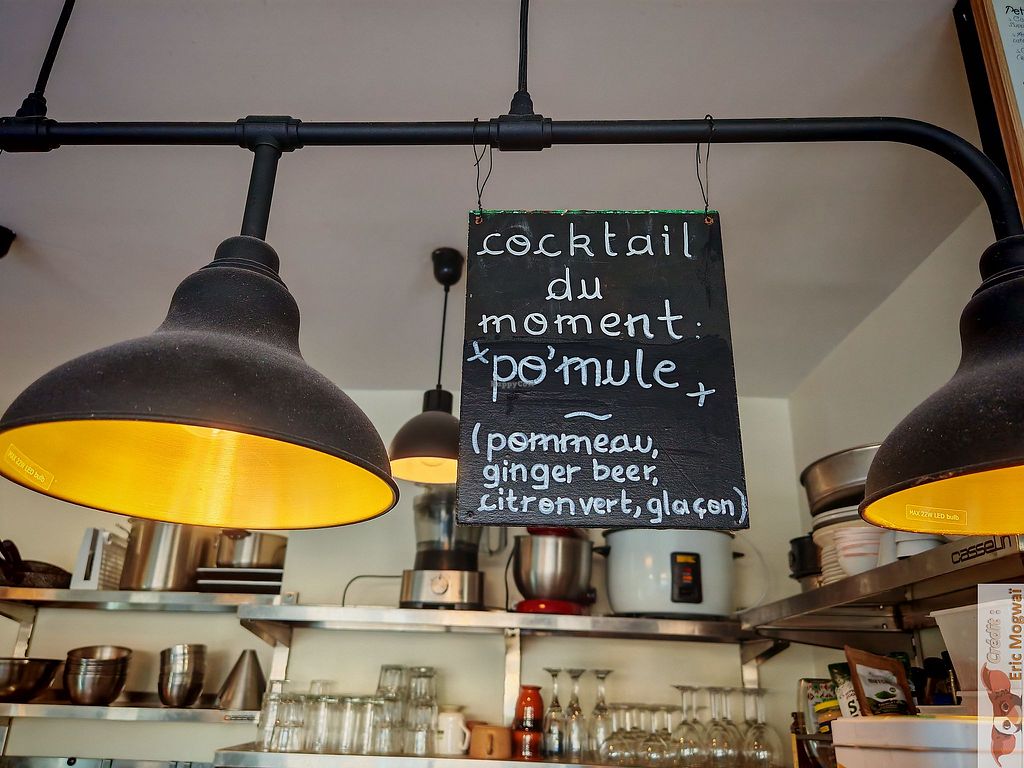 cocktail
du
moment:
x po'mule x
~
(pommeau,
ginger beer,
citron vert, glaçon)
HappyCow
MAX 22W LED bulb
MAX 22W LED bulb
CASSELIN
Crédit :
Eric Mogwaï